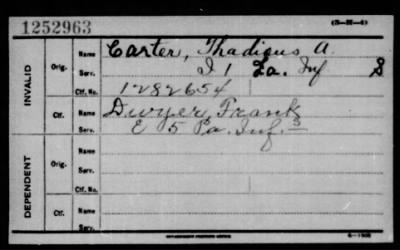 1252963 (3-H-4)
Name Carter, Thadieus A.
INVALID Orig. Serv. I 1 La. Inf S
Ctf. No. 1282654
Ctf. Name Dwyer, Frank
Serv. E 5 Pa. Inf. S
DEPENDENT Orig. Name
Serv.
Ctf. No.
Ctf. Name
Serv.